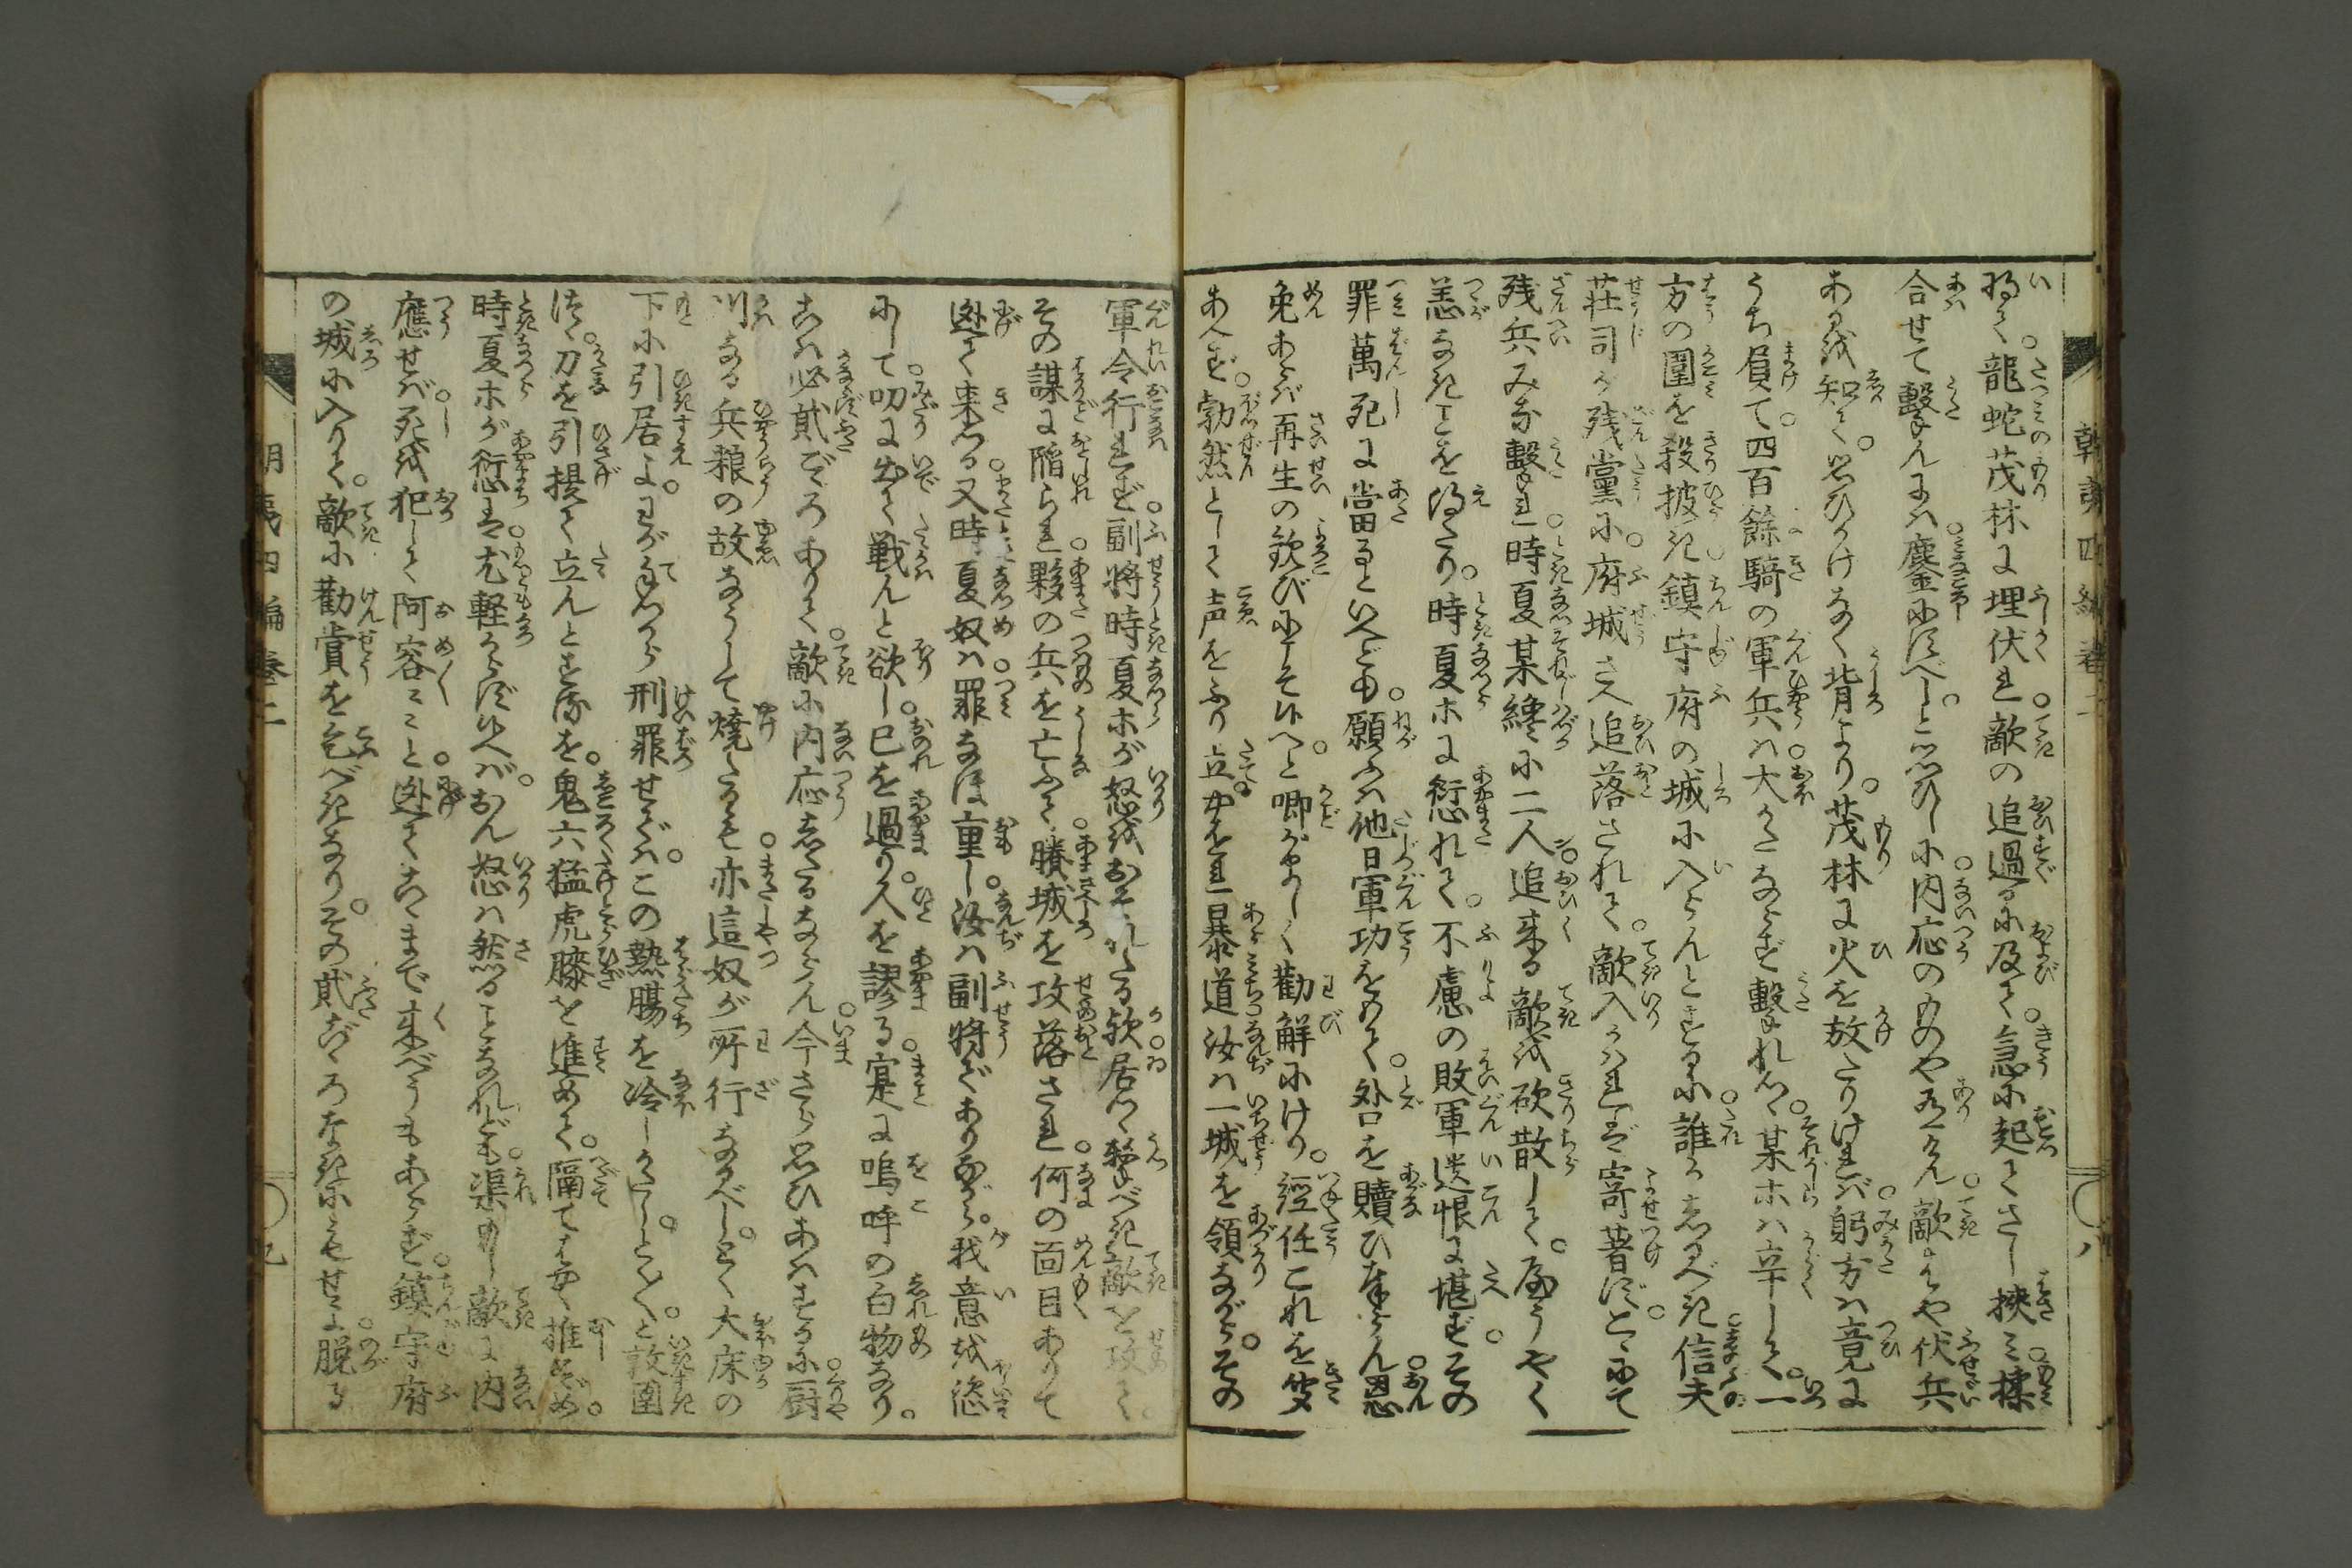 朝夷四編巻二
龍蛇茂林に埋伏れ敵の追過るに及て。急に起てさし挾み揉
合せて撃んには鏖にすべしと思ひしに内応のものや有けん敵はや伏兵
あるを知て。思ひかけなく背より。茂林に火を放たりければ躬方は竟に
うち負て。四百餘騎の軍兵は大かたならず撃れつ。某ホは辛くして。一
方の圍を殺披き鎮守府の城に入らんとするに誰かしるべき信夫
荘司が残黨に府城さへ追落されて。敵入かはれば寄著ず。とにて
残兵みな撃れ時夏某纔に二人追来る敵を砍散して。やうやく
恙なきことを得たり。時夏ホに愆れて。不慮の敗軍遺恨に堪ずその
罪萬死に當るといへども願ふは他日軍功をもて。外を贖ひ奉らん恩
免あらば再生の欽びにこそ候へ。と唧がましく勸解にけり。經任これを
あへず。勃然として声をふり立やをれ暴道汝は一城を領ながら。その
八
軍令行れず。副將時夏ホが怒をおそれたる欤居つゝ撃べき敵を攻て。
その謀に陥られ夥の兵を亡ふて。賸城を攻落され何の面目ありて
迯て来つる又時夏奴は罪なほ重し。汝は副將でありながら。我意を恣
にして叨に出て戦んと欲し。己を過り。人を謬る。寔に嗚呼の白物なり。
こは必貳ごゝろありて。敵に内応したるならん今さら思ひあはするに厨
川なる兵粮の故なうして燒たるも亦這奴が所行なるべし。とく大床の
下に引居よ。わが手つから刑罪せずは。この熱腸を冷しかたし。とく〳〵と敦圉
つゝ。刀を引提て立んとするを。鬼六猛虎膝を進めて。隔て推とゞめ
時夏ホが愆は尤軽からず候へば。おん怒は然ることなれども渠もし敵に内
應せば死を犯して阿容々々と。迯てこゝまで来べうもあらず。鎮守府
の城に入りて。敵に勸賞を乞べきなり。その貳ごゝろなきにもせよ脱る
朝夷四編巻二
九